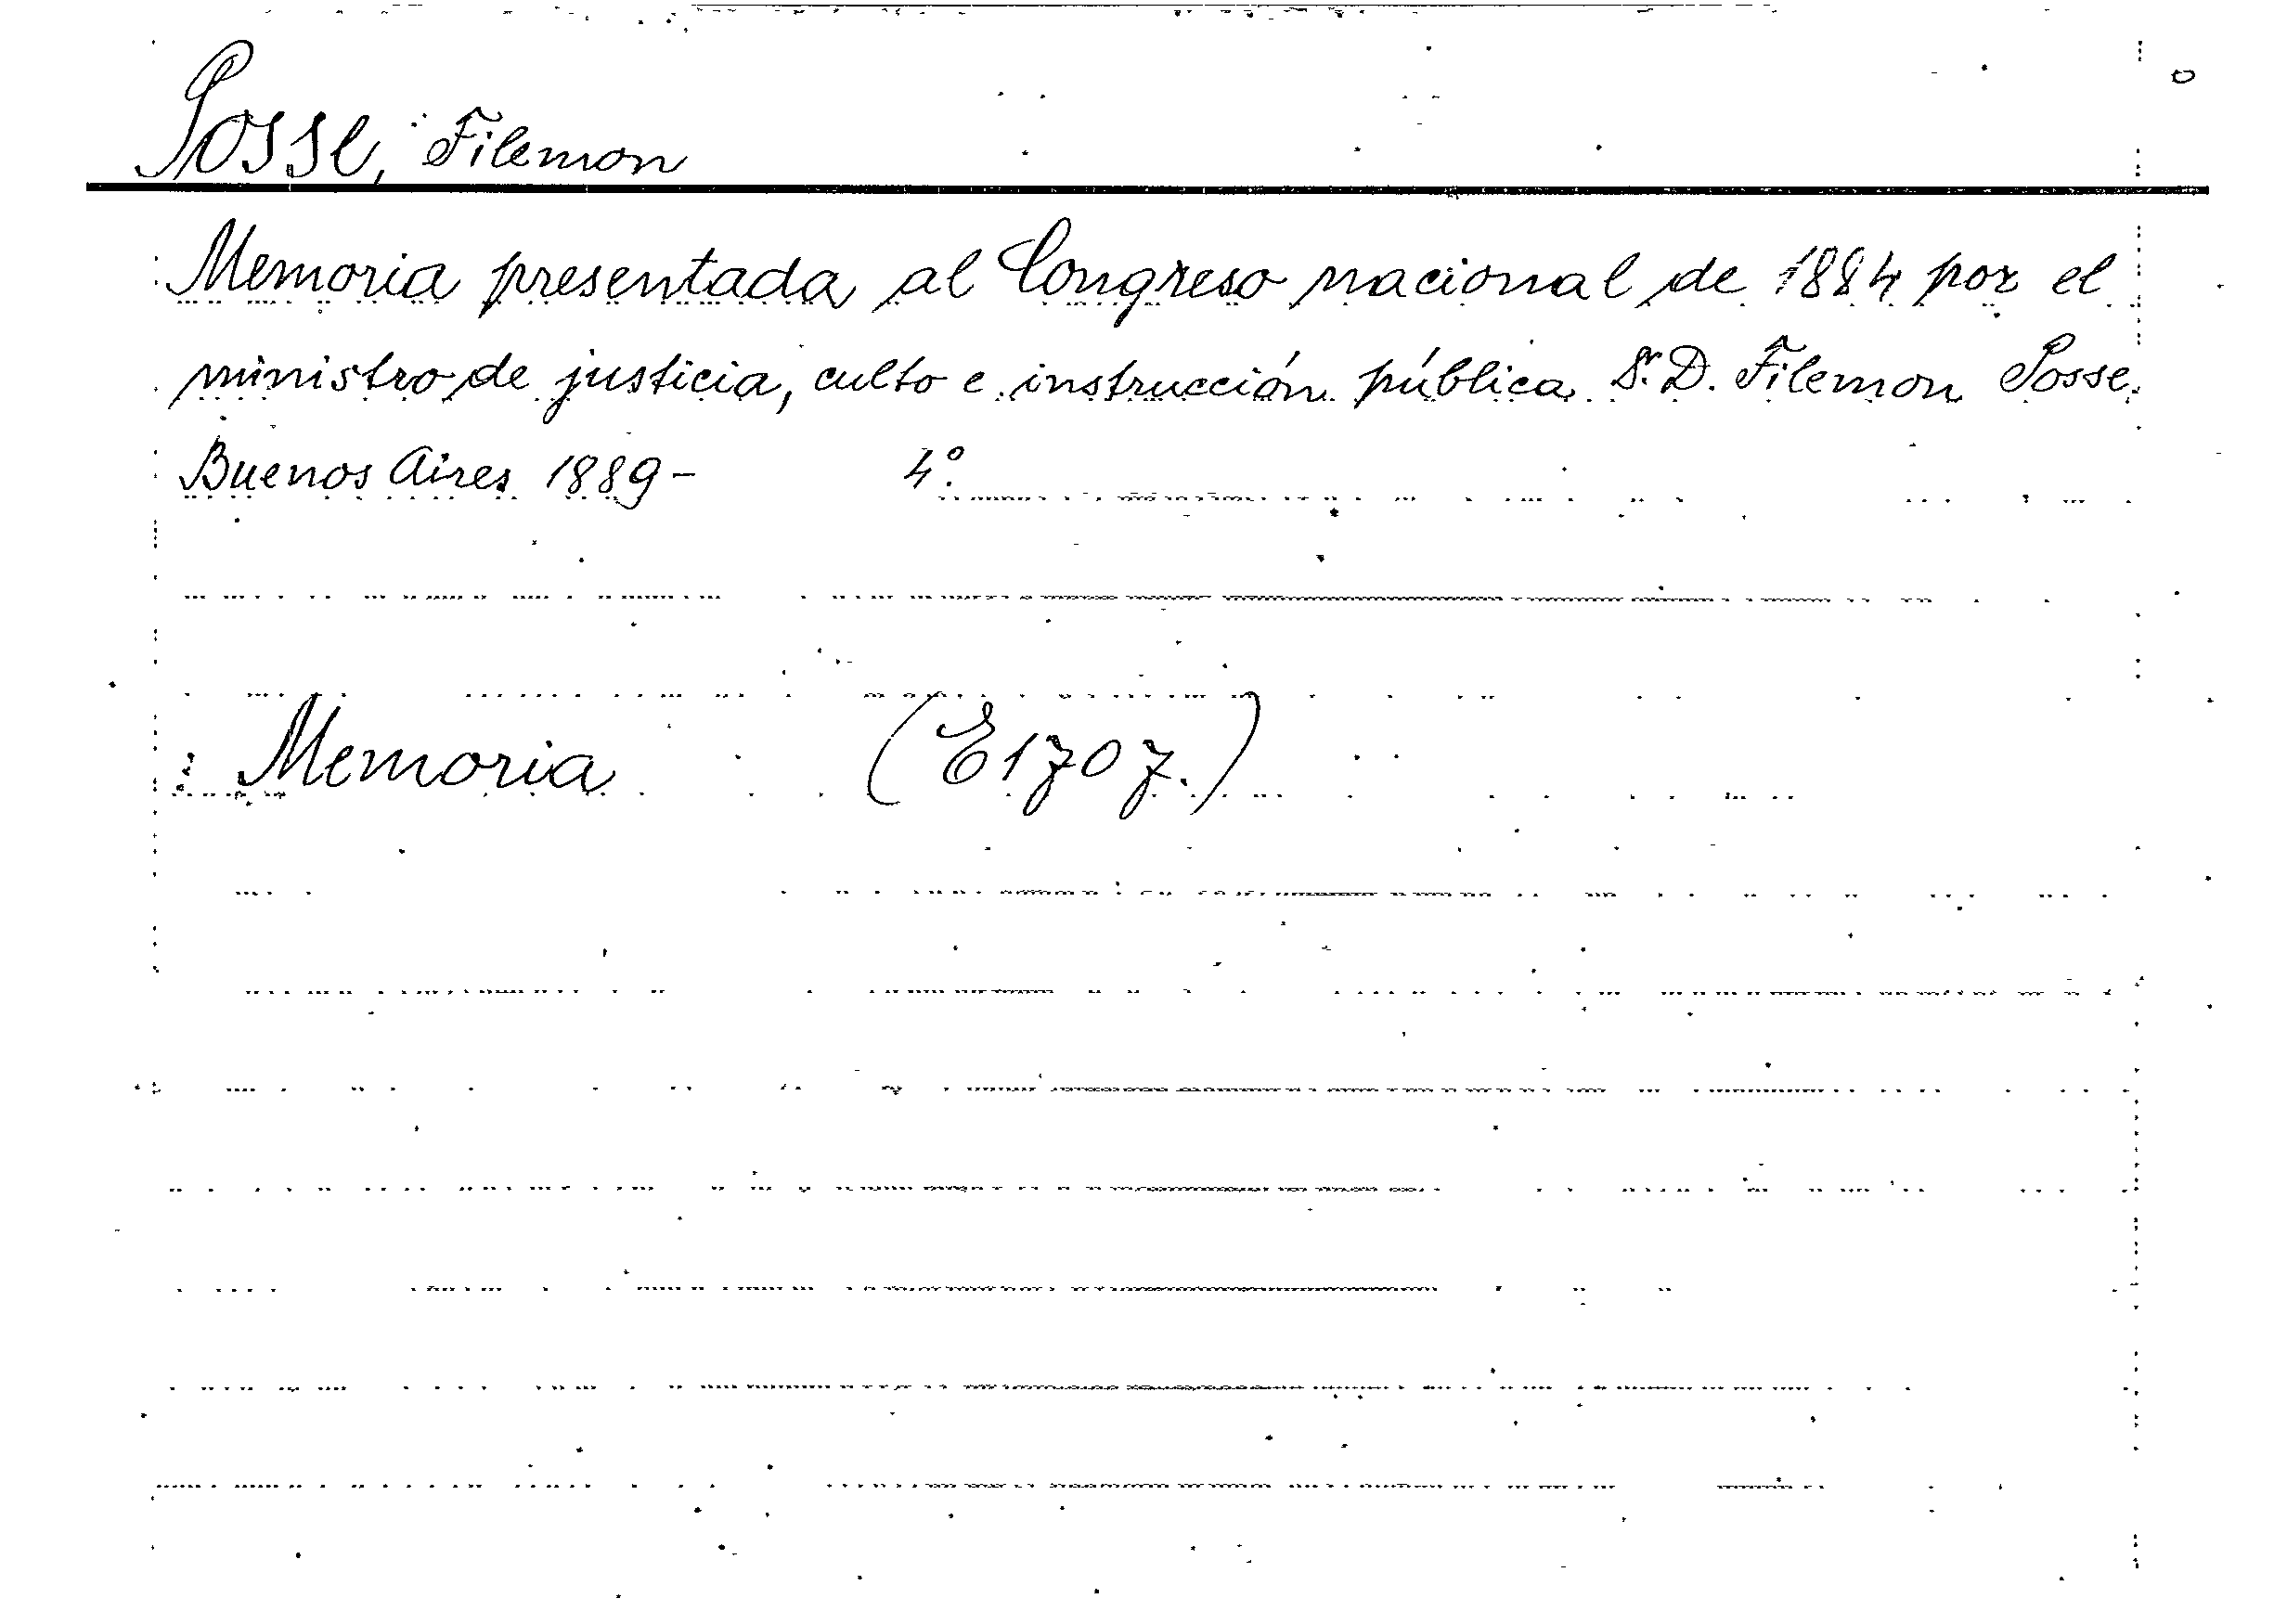 Posse, Filemon
Memoria presentada al Congreso nacional de 1884 por el
ministro de justicia, culto e instrucción pública Sr. D. Filemon Posse.
Buenos Aires 1889- 4º.
Memoria (E1707.)